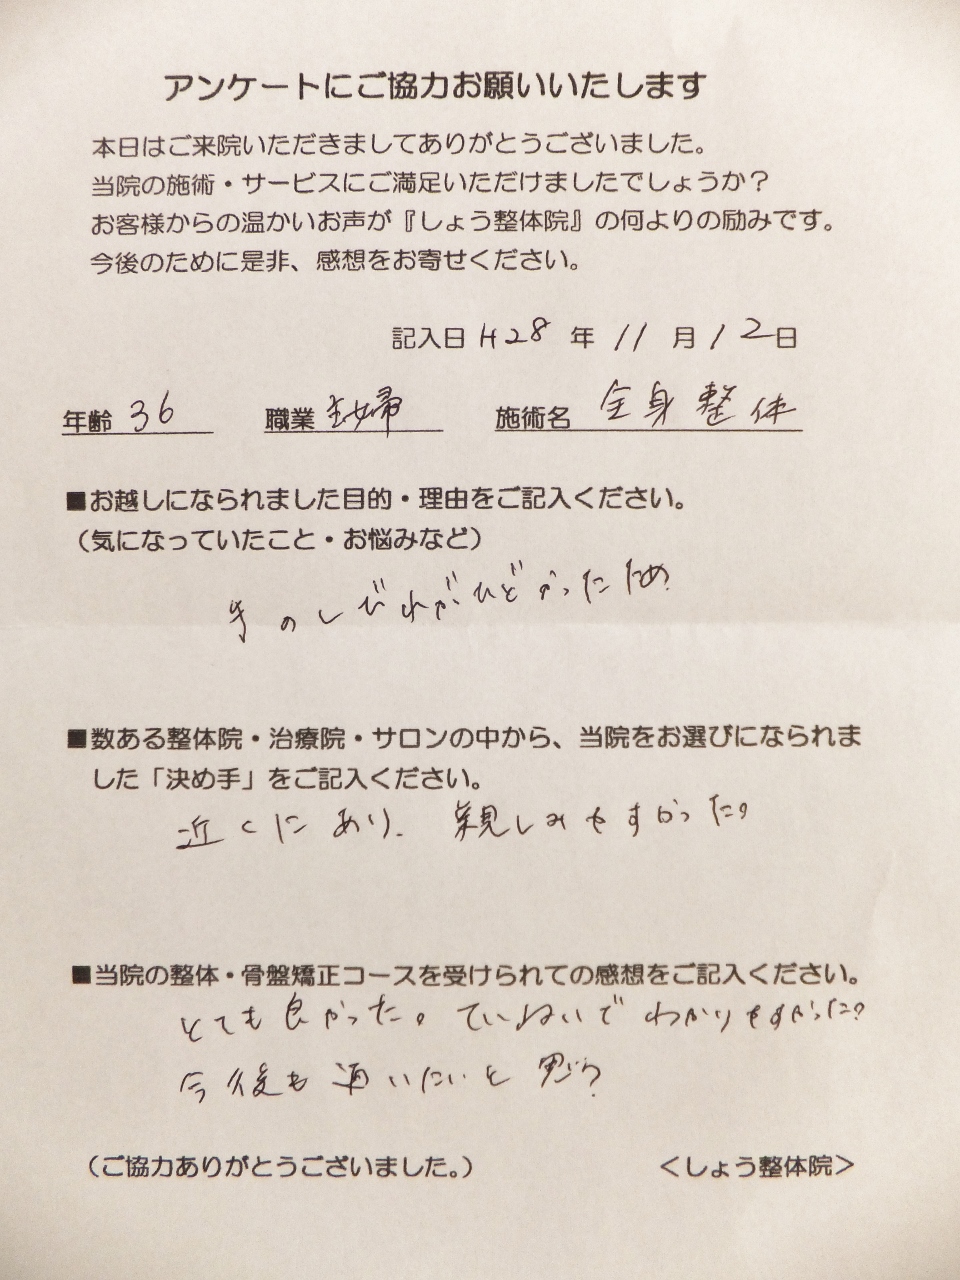 アンケートにご協力お願いいたします
本日はご来院いただきましてありがとうございました。
当院の施術・サービスにご満足いただけましたでしょうか？
お客様からの温かいお声が『しょう整体院』の何よりの励みです。
今後のために是非、感想をお寄せください。
記入日 H28 年 11 月 12日
年齢 36 職業 主婦 施術名 全身整体
■お越しになられました目的・理由をご記入ください。
（気になっていたこと・お悩みなど）
手のしびれがひどかったため。
■数ある整体院・治療院・サロンの中から、当院をお選びになられま
した「決め手」をご記入ください。
近くにあり、親しみやすかった。
■当院の整体・骨盤矯正コースを受けられての感想をご記入ください。
とても良かった。ていねいでわかりやすかった。
今後も通いたいと思う。
（ご協力ありがとうございました。） ＜しょう整体院＞